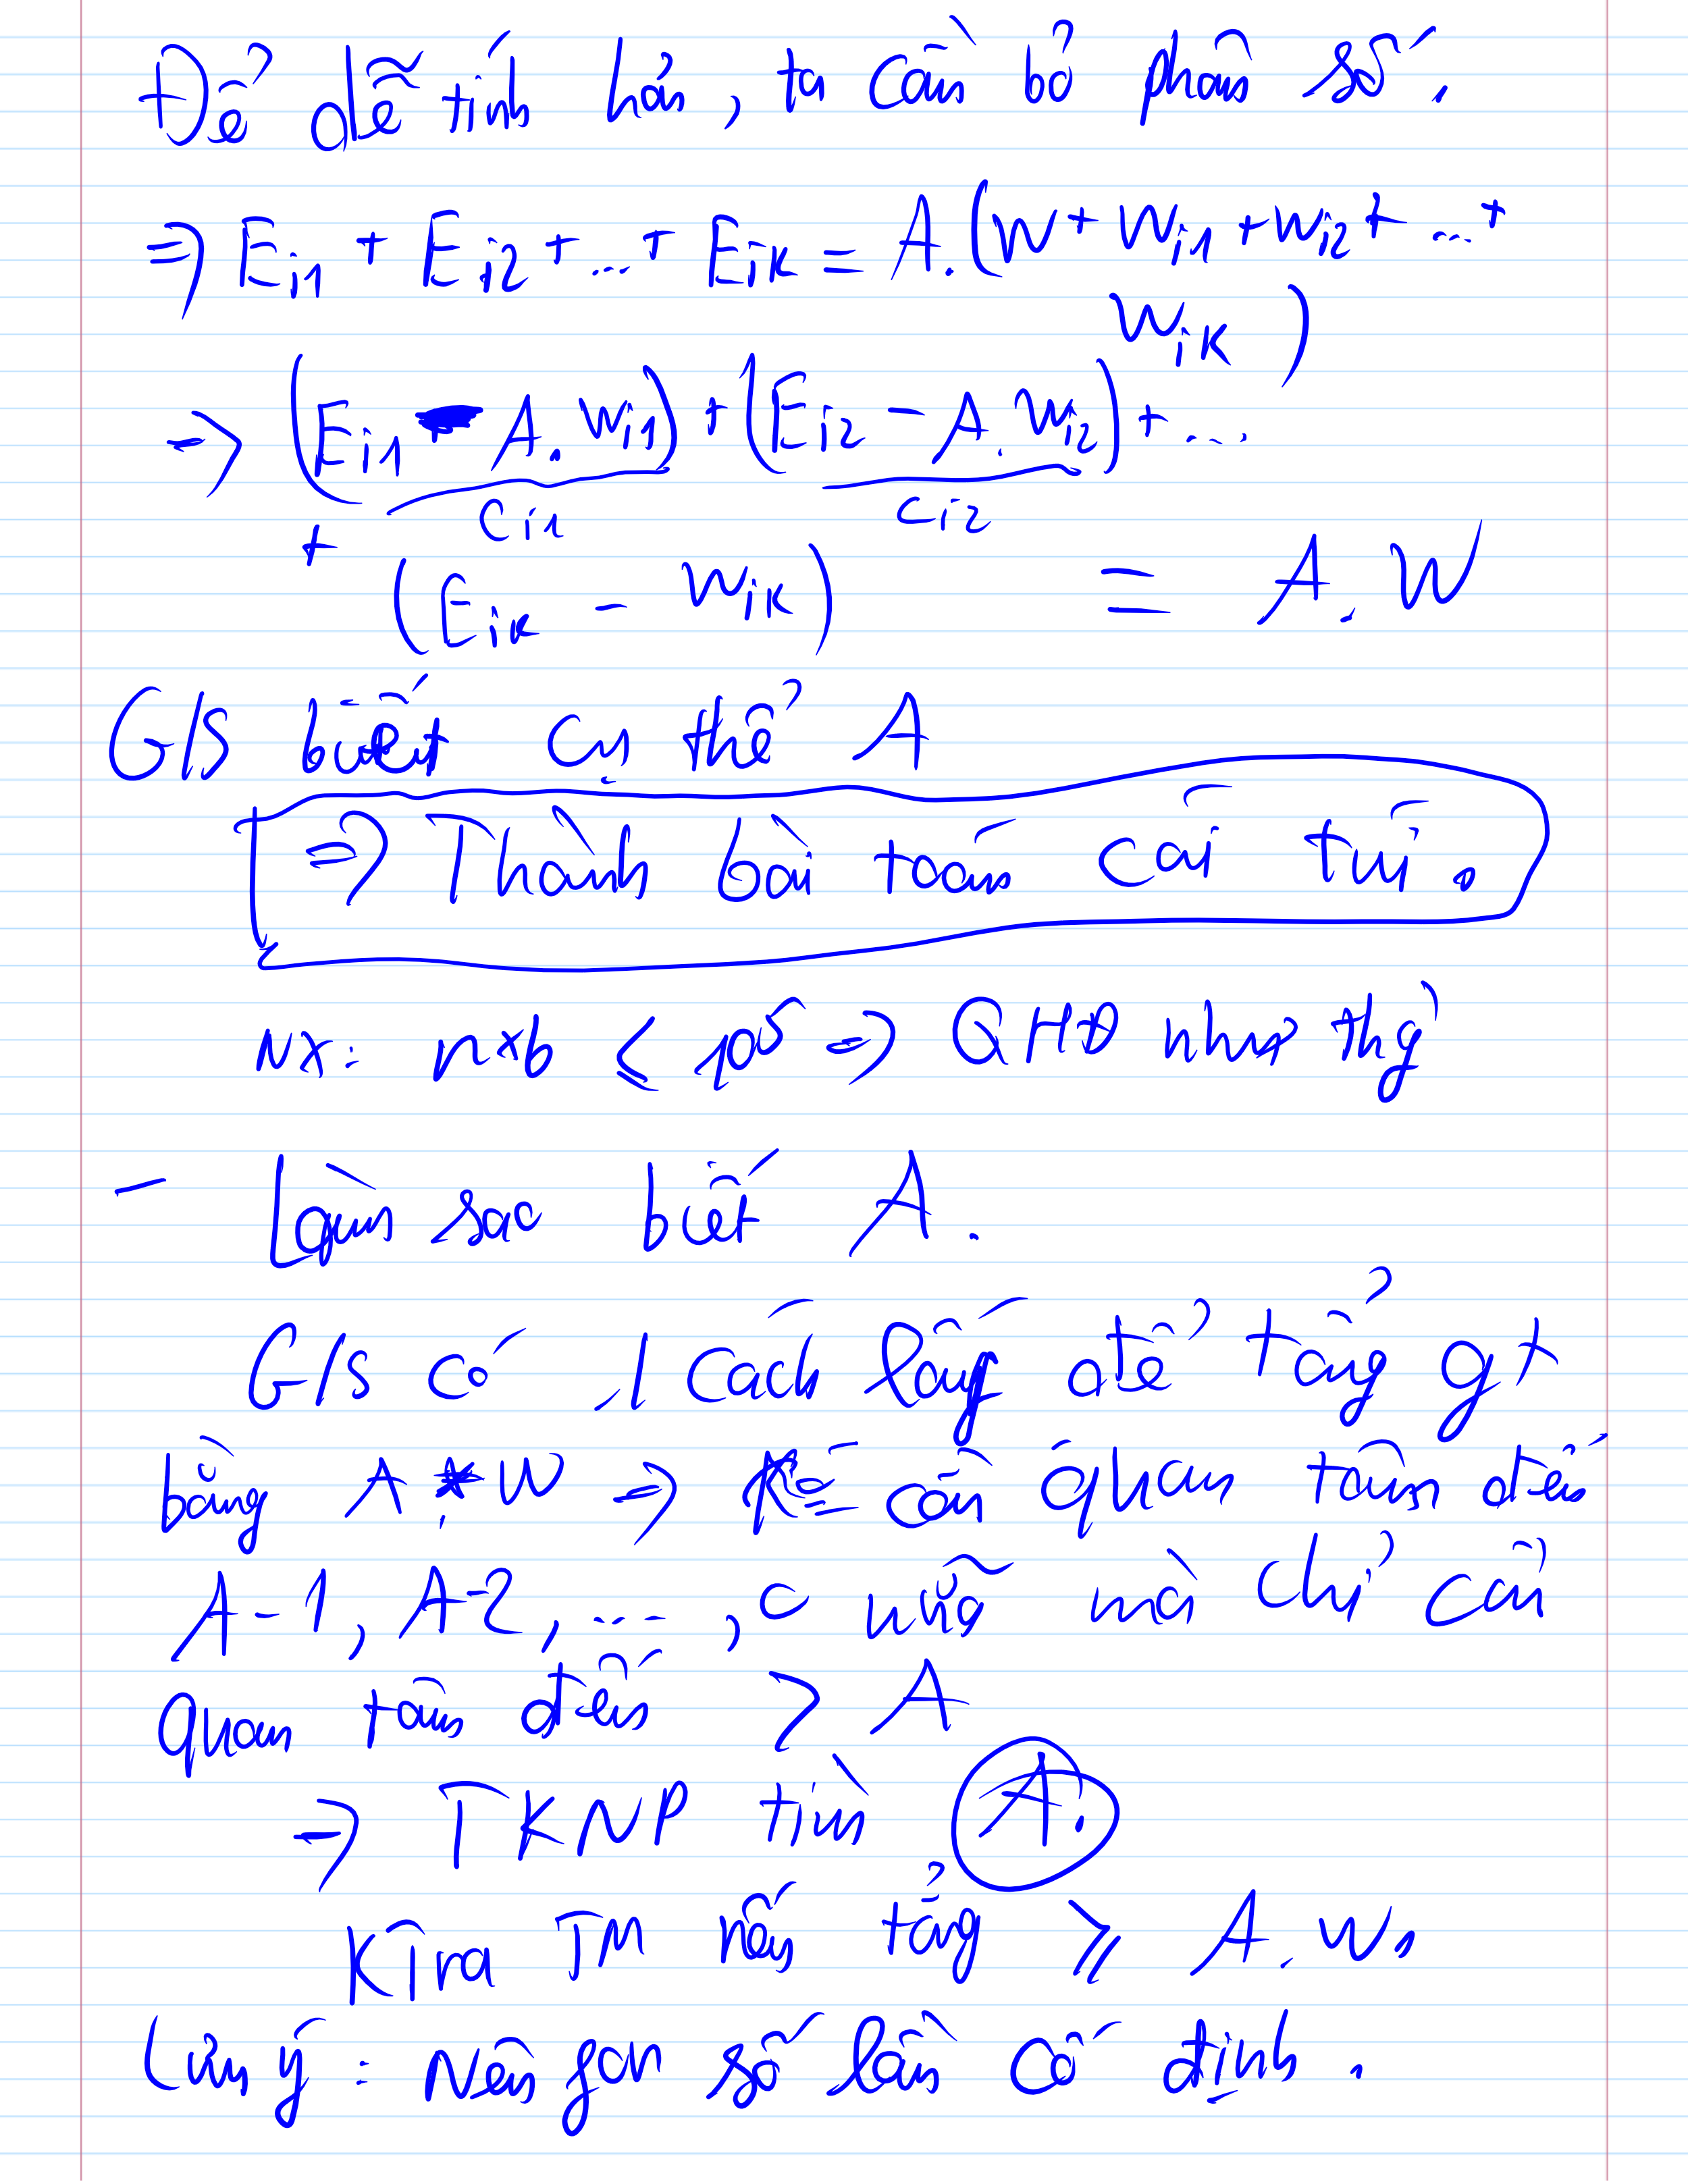 Để dễ tính hơn, ta cần bỏ phân số.
⇒ E_{i1} + E_{i2} + ... + E_{ik} = A.(W + W_{i1} + W_{i2} + ... +
W_{ik})
→ (E_{i1} - A.W_{i1}) + (E_{i2} - A.W_{i2}) + ...
C_{i1} C_{i2}
+ (E_{ik} - W_{ik}) = A.W
G/S biết cụ thể A
⇒ Thành bài toán cái túi.
NX: n*b ≤ 10^5 ⇒ QHĐ như thg
- Làm sao biết A.
G/S có 1 cách lấy để tổng gt
bằng A * W ⇒ K cần quan tâm đến
A-1, A-2, ..., 0 nữa mà chỉ cần
quan tâm đến > A
→ TKNP tìm A.
KTra TM nếu tổng ≥ A.W.
Lưu ý: Nên gan số lần cố định.